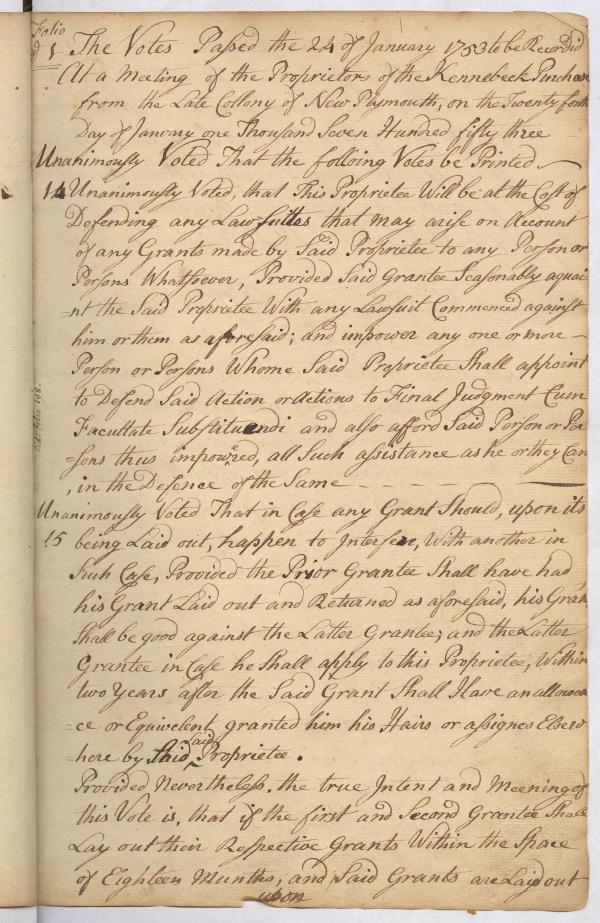 Folio
1 The Votes Passed the 24 of January 1753 to be Recordid
At a Meeting of the Proprietors of the Kennebeck Purchase
from the Late Collony of New Plymouth, on the Twenty forth
Day of January one Thousand Seven Hundred fifty three
Unanimously Voted That the following Votes be Printed
14 Unanimously Voted, that This Proprietee Will be at the Cost of
Defending any Law Suites that may arise on Account
of any Grants made by Said Proprietee to any Person or
Persons Whatsoever, Provided Said Grantee Seasonably aquai
=nt the Said Proprietee With any Lawsuit Commenced against
him or them as aforesaid; and impower any one or more
Person or Persons Whome Said Proprietee Shall appoint
to Defend Said Action or Actions to Final Judgment Cum
Facultate Substituendi and also afford Said Person or Per
=sons thus impowred, all Such assistance as he or they Can
, in the Defence of the Same
Unanimously Voted That in Case any Grant Should, upon its
15 being Laid out, happen to Interfere, With another in
Such Case, Provided the Prior Grantee Shall have had
his Grant Laid out and Returned as aforesaid, his Grant
Shall be good against the Latter Grantee; and the Latter
Grantee in Case he Shall apply to this Proprietee, Within
two Years after the Said Grant Shall Have an allowan
=ce or Equivelent granted him his Hairs or assignes Elsew
=here by this Said Proprietee.
Provided Nevertheless. the true Intent and Meening of
this Vote is, that if the first and Second Grantee Shall
Lay out their Respective Grants Within the Space
of Eighteen Munths, and Said Grants are Laid out
upon